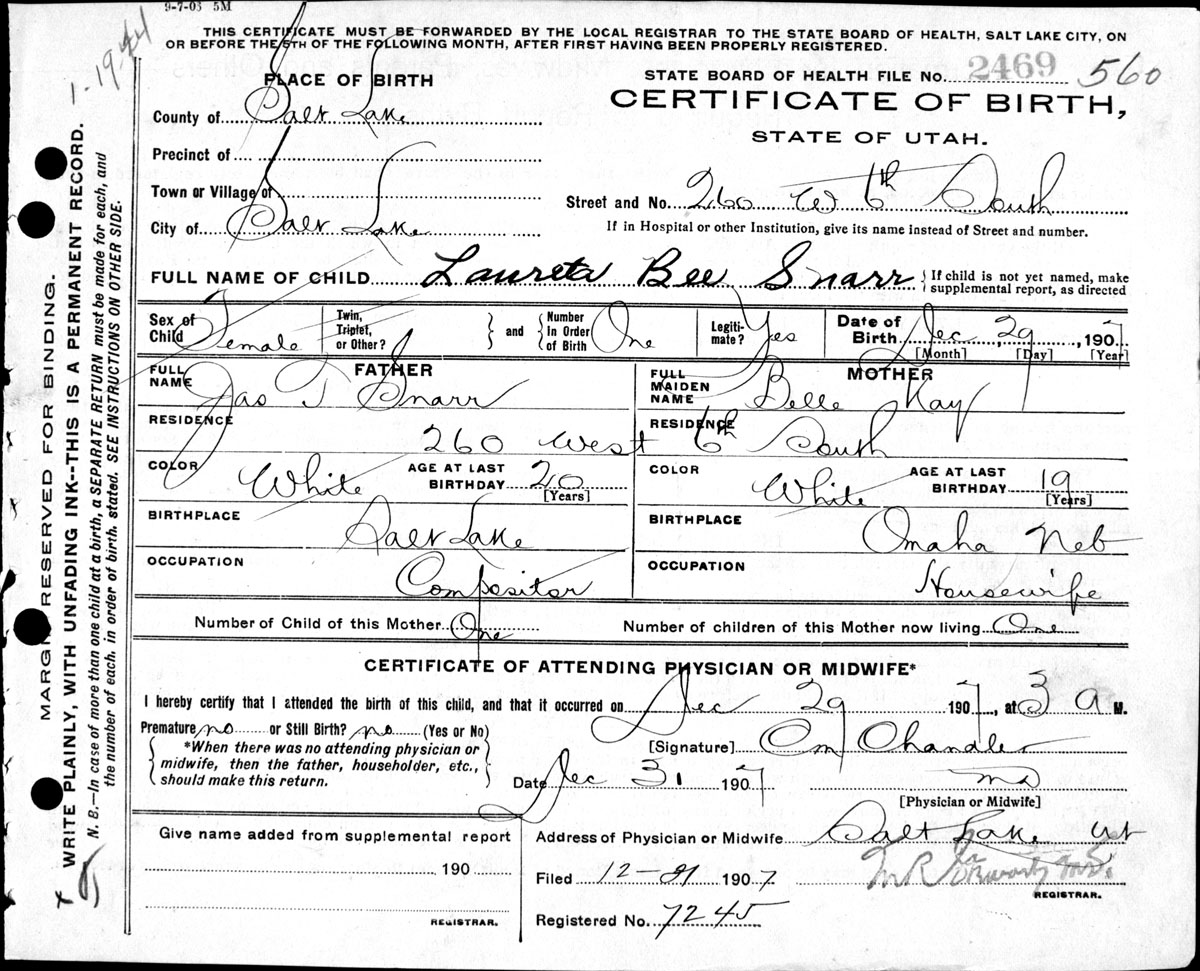 9-7-03 5M
THIS CERTIFICATE MUST BE FORWARDED BY THE LOCAL REGISTRAR TO THE STATE BOARD OF HEALTH, SALT LAKE CITY, ON
OR BEFORE THE 5TH OF THE FOLLOWING MONTH, AFTER FIRST HAVING BEEN PROPERLY REGISTERED.
1-1944
STATE BOARD OF HEALTH FILE No. 2469 560
CERTIFICATE OF BIRTH,
STATE OF UTAH.
PLACE OF BIRTH
County of Salt Lake
Precinct of
Town or Village of
City of Salt Lake
Street and No. 260 W 6th South
If in Hospital or other Institution, give its name instead of Street and number.
FULL NAME OF CHILD Laureta Bee Snarr { If child is not yet named, make supplemental report, as directed
Sex of Child Female Twin, Triplet, or Other? } and { Number In Order of Birth One Legitimate? Yes Date of Birth Dec 29, 1907
[Month] [Day] [Year]
FATHER
FULL NAME Jas T Snarr
RESIDENCE 260 West 6th South
COLOR White AGE AT LAST BIRTHDAY 20
[Years]
BIRTHPLACE Salt Lake
OCCUPATION Compositor
MOTHER
FULL MAIDEN NAME Belle Kay
RESIDENCE
COLOR White AGE AT LAST BIRTHDAY 19
[Years]
BIRTHPLACE Omaha Neb
OCCUPATION Housewife
Number of Child of this Mother One Number of children of this Mother now living One
CERTIFICATE OF ATTENDING PHYSICIAN OR MIDWIFE*
I hereby certify that I attended the birth of this child, and that it occurred on Dec 29 1907, at 3 a M.
Premature no or Still Birth? no (Yes or No)
{ *When there was no attending physician or
midwife, then the father, householder, etc.,
should make this return. }
[Signature] Chandler
Date Dec 31 1907 MD
[Physician or Midwife]
Give name added from supplemental report
190
REGISTRAR.
Address of Physician or Midwife Salt Lake Ut
Filed 12-31 1907
REGISTRAR.
Registered No. 7245
MARGIN RESERVED FOR BINDING.
WRITE PLAINLY, WITH UNFADING INK--THIS IS A PERMANENT RECORD.
N. B.—In case of more than one child at a birth, a SEPARATE RETURN must be made for each, and
the number of each, in order of birth, stated. SEE INSTRUCTIONS ON OTHER SIDE.